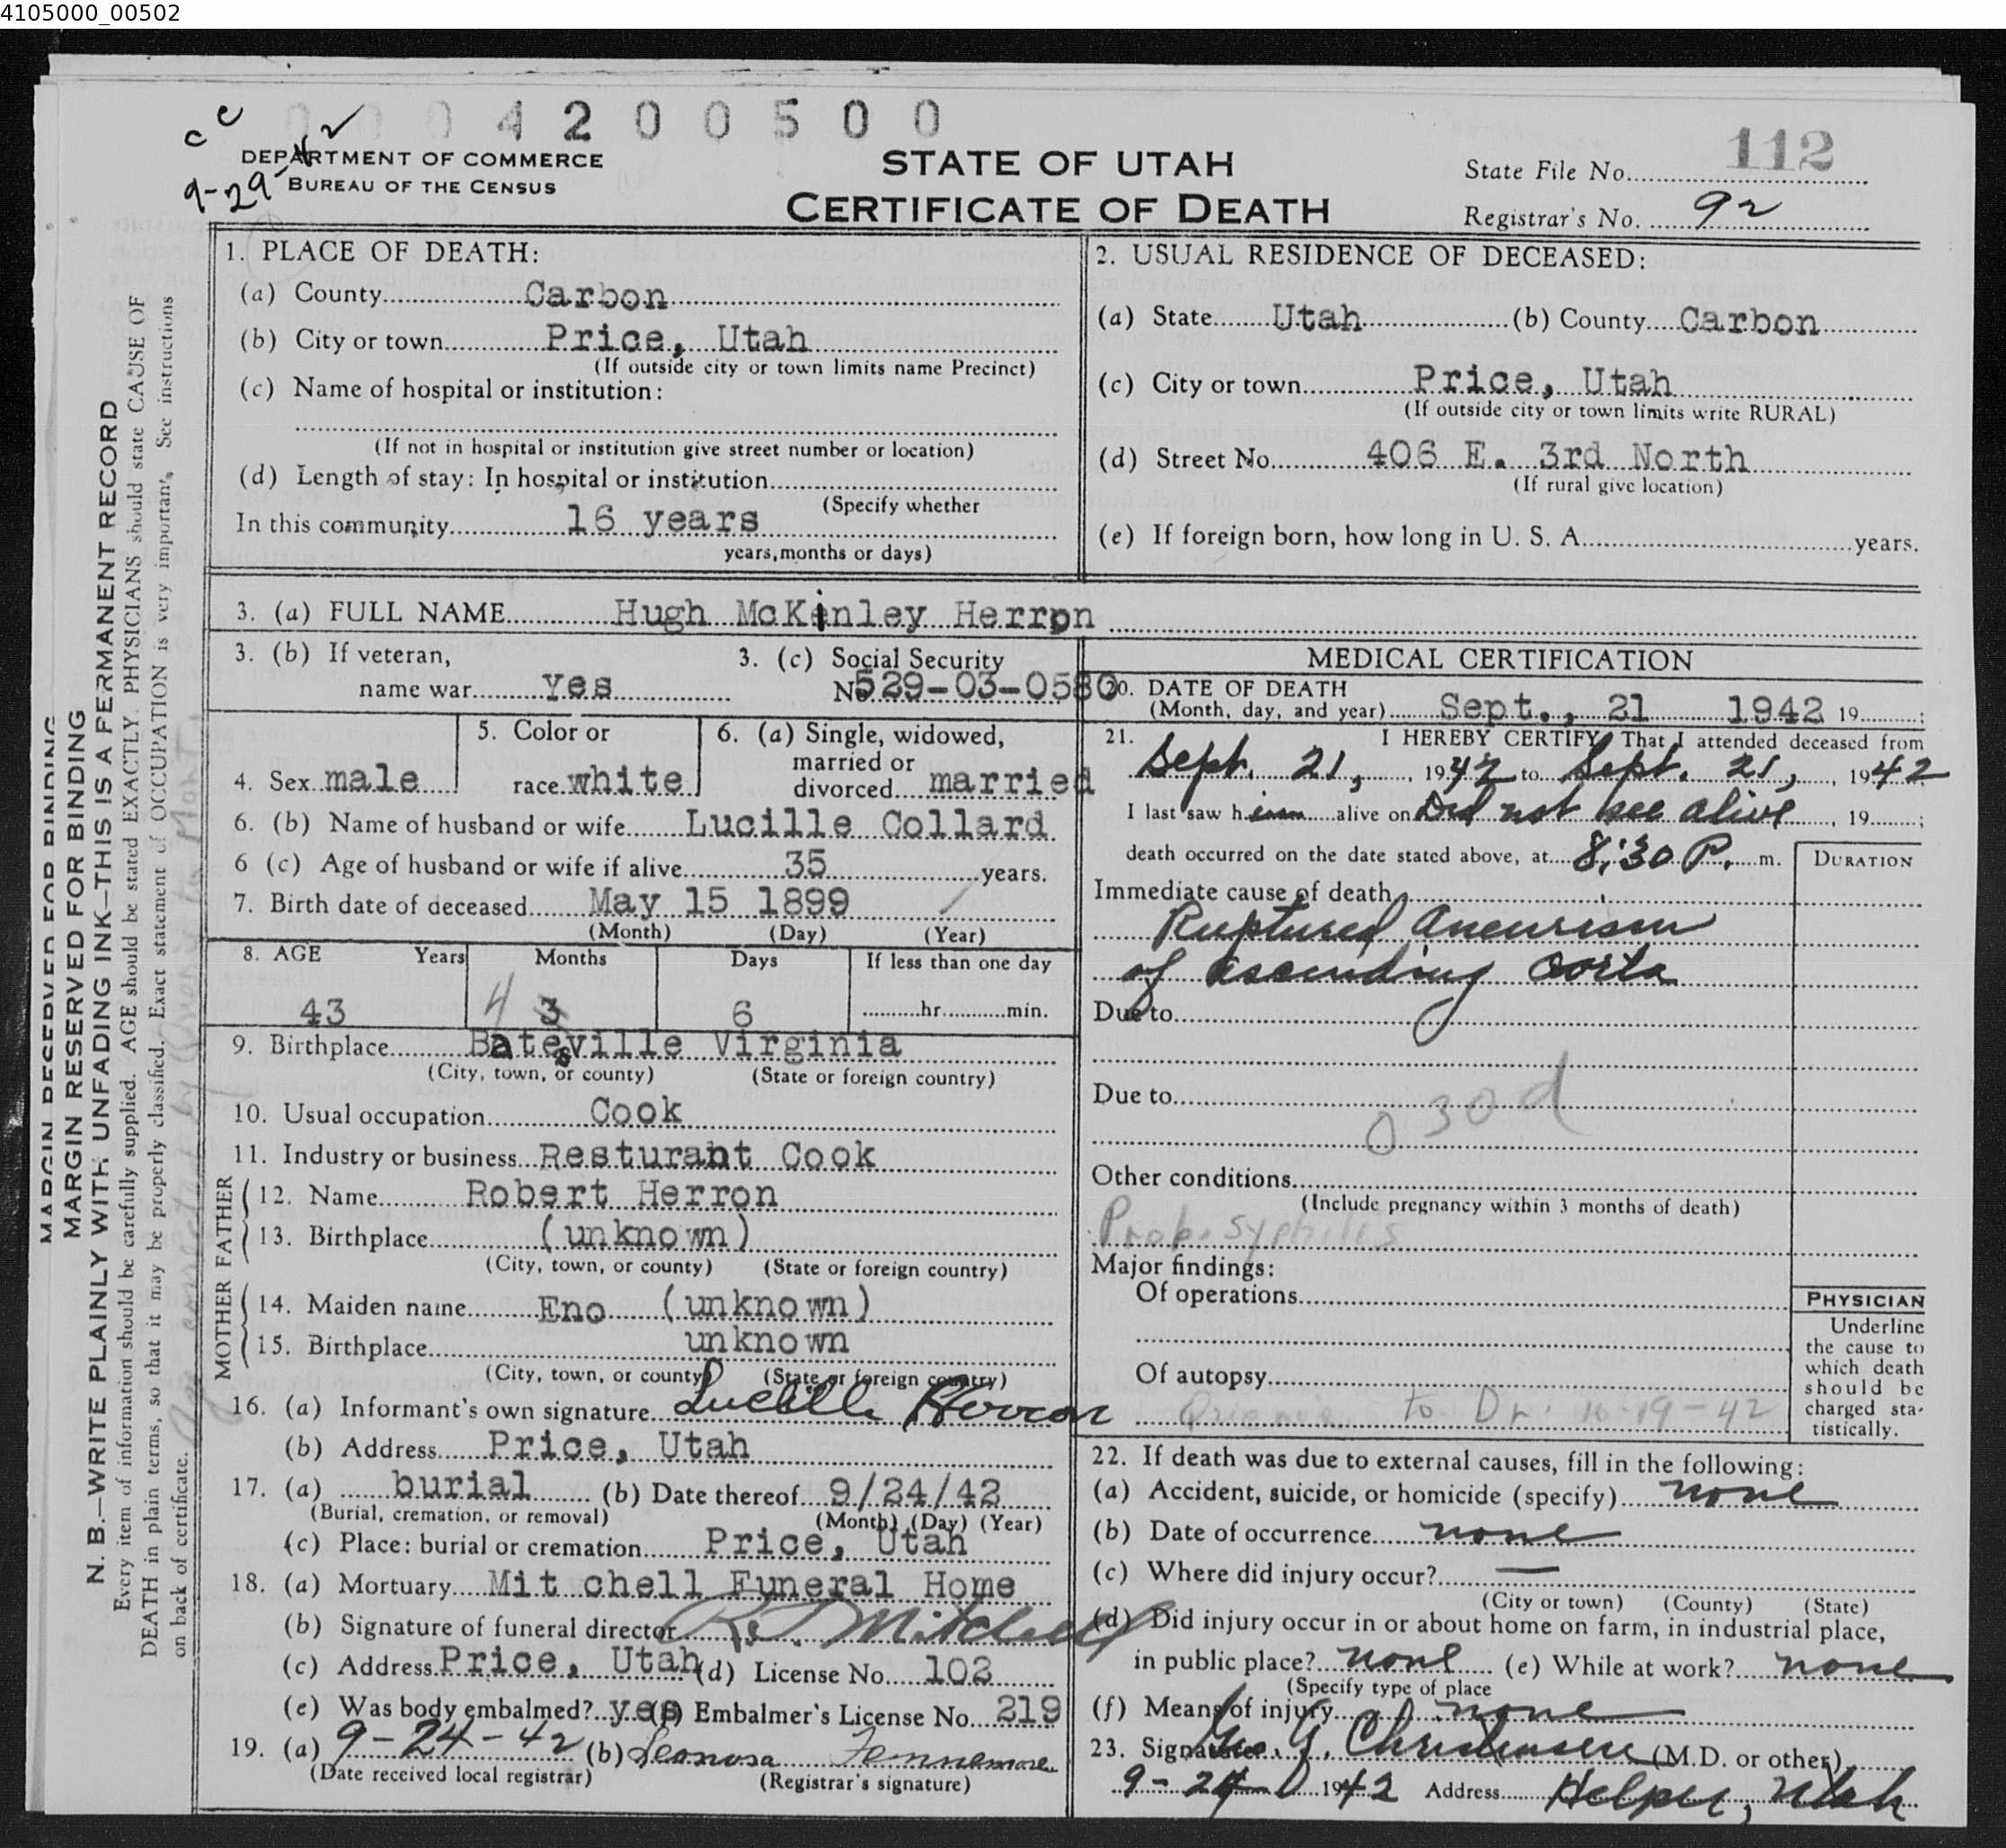 4105000_00502
0004200500
cc
9-29-42
DEPARTMENT OF COMMERCE
BUREAU OF THE CENSUS
STATE OF UTAH
CERTIFICATE OF DEATH
State File No. 112
Registrar's No. 92
MARGIN RESERVED FOR BINDING
MARGIN RESERVED FOR BINDING
N. B.—WRITE PLAINLY WITH UNFADING INK—THIS IS A PERMANENT RECORD
Every item of information should be carefully supplied. AGE should be stated EXACTLY. PHYSICIANS should state CAUSE OF
DEATH in plain terms, so that it may be properly classified. Exact statement of OCCUPATION is very important. See instructions
on back of certificate.
1. PLACE OF DEATH:
(a) County Carbon
(b) City or town Price, Utah
(If outside city or town limits name Precinct)
(c) Name of hospital or institution:
(If not in hospital or institution give street number or location)
(d) Length of stay: In hospital or institution
(Specify whether
In this community 16 years
years, months or days)
2. USUAL RESIDENCE OF DECEASED:
(a) State Utah (b) County Carbon
(c) City or town Price, Utah
(If outside city or town limits write RURAL)
(d) Street No. 406 E. 3rd North
(If rural give location)
(e) If foreign born, how long in U. S. A. years.
3. (a) FULL NAME Hugh McKinley Herron
3. (b) If veteran,
name war yes
3. (c) Social Security
No. 529-03-0580
4. Sex male
5. Color or
race white
6. (a) Single, widowed,
married or
divorced married
6. (b) Name of husband or wife Lucille Collard
6 (c) Age of husband or wife if alive 35 years.
7. Birth date of deceased May 15 1899
(Month) (Day) (Year)
8. AGE Years Months Days If less than one day
43 4 3 6 hr. min.
9. Birthplace Batesville Virginia
(City, town, or county) (State or foreign country)
10. Usual occupation Cook
11. Industry or business Resturant Cook
FATHER
12. Name Robert Herron
13. Birthplace (unknown)
(City, town, or county) (State or foreign country)
MOTHER
14. Maiden name Eno (unknown)
15. Birthplace unknown
(City, town, or county) (State or foreign country)
16. (a) Informant's own signature Lucille Herron
(b) Address Price, Utah
17. (a) burial (b) Date thereof 9/24/42
(Burial, cremation, or removal) (Month) (Day) (Year)
(c) Place: burial or cremation Price, Utah
18. (a) Mortuary Mit chell Funeral Home
(b) Signature of funeral director Mitchell
(c) Address Price, Utah (d) License No. 102
(e) Was body embalmed? yes (f) Embalmer's License No. 219
19. (a) 9-24-42 (b) Leonora Fennemore
(Date received local registrar) (Registrar's signature)
MEDICAL CERTIFICATION
20. DATE OF DEATH
(Month, day, and year) Sept., 21 1942 19 ;
21. I HEREBY CERTIFY, That I attended deceased from
Sept. 21, 1942 to Sept. 21, 1942
I last saw h im alive on Did not see alive, 19 ;
death occurred on the date stated above, at 8:30 P. m.
DURATION
Immediate cause of death
Ruptured Aneurism
of ascending aorta
Due to
Due to
030d
Other conditions
(Include pregnancy within 3 months of death)
Prob. syphilis
Major findings:
Of operations
Of autopsy
to Dr. 10-19-42
PHYSICIAN
Underline
the cause to
which death
should be
charged sta-
tistically.
22. If death was due to external causes, fill in the following:
(a) Accident, suicide, or homicide (specify) none
(b) Date of occurrence none
(c) Where did injury occur? —
(City or town) (County) (State)
(d) Did injury occur in or about home on farm, in industrial place,
in public place? none (e) While at work? none
(Specify type of place
(f) Means of injury none
23. Signature Christensen (M.D. or other)
9-24 1942 Address Helper, Utah